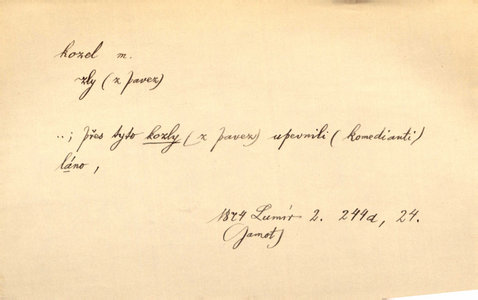 kozel m.
zly (z pavez)
..; přes tyto kozly (z pavez) upevnili (komedianti)
láno,
1874 Lumír 2. 244a, 24.
(Jamot)